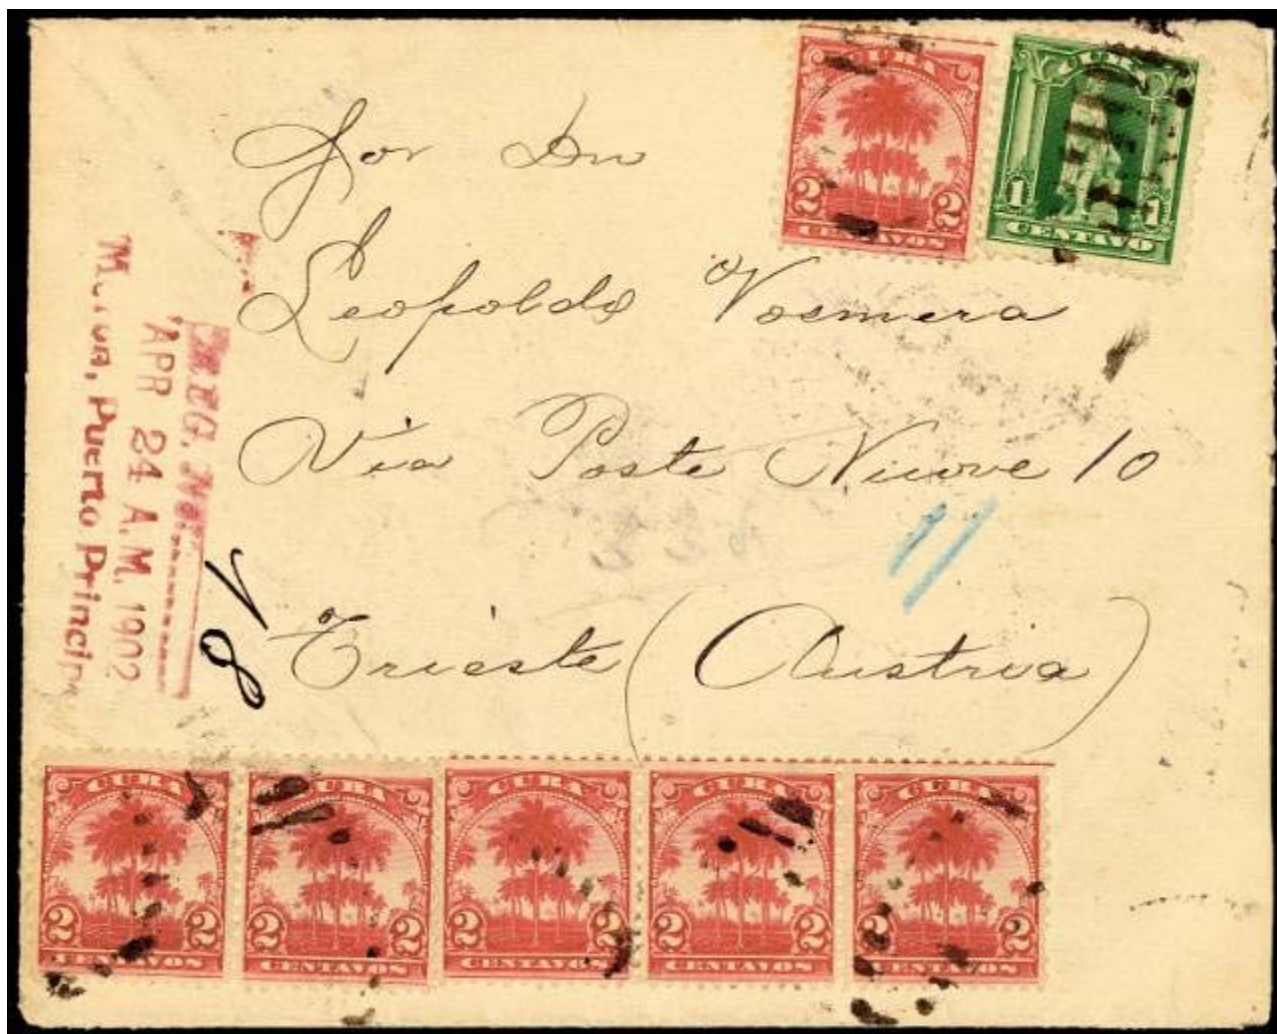 CUBA
2 2
CENTAVOS
CUBA
1 1
CENTAVO
Leopoldo Vosmera
Via Poste Niuove 10
11
Trieste (Austria)
REG. No.
18
APR 24 A.M. 1902
Puerto Princip
CUBA
2 2
CENTAVOS
CUBA
2 2
CENTAVOS
CUBA
2 2
CENTAVOS
CUBA
2 2
CENTAVOS
CUBA
2 2
CENTAVOS